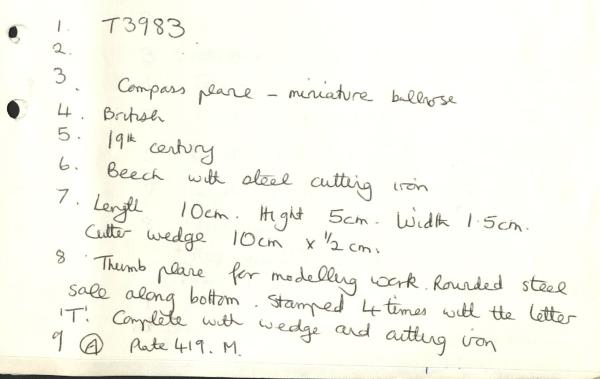 1. T3983
2.
3. Compass plane - miniature bullnose
4. British
5. 19th century
6. Beech with steel cutting iron
7. Length 10cm. Hight 5cm. Width 1.5cm.
Cutter wedge 10cm x 1/2 cm.
8 Thumb plane for modelling work. Rounded steel
sole along bottom. Stamped 4 times with the letter
'T'. Complete with wedge and cutting iron
9 (A) Plate 419. M.